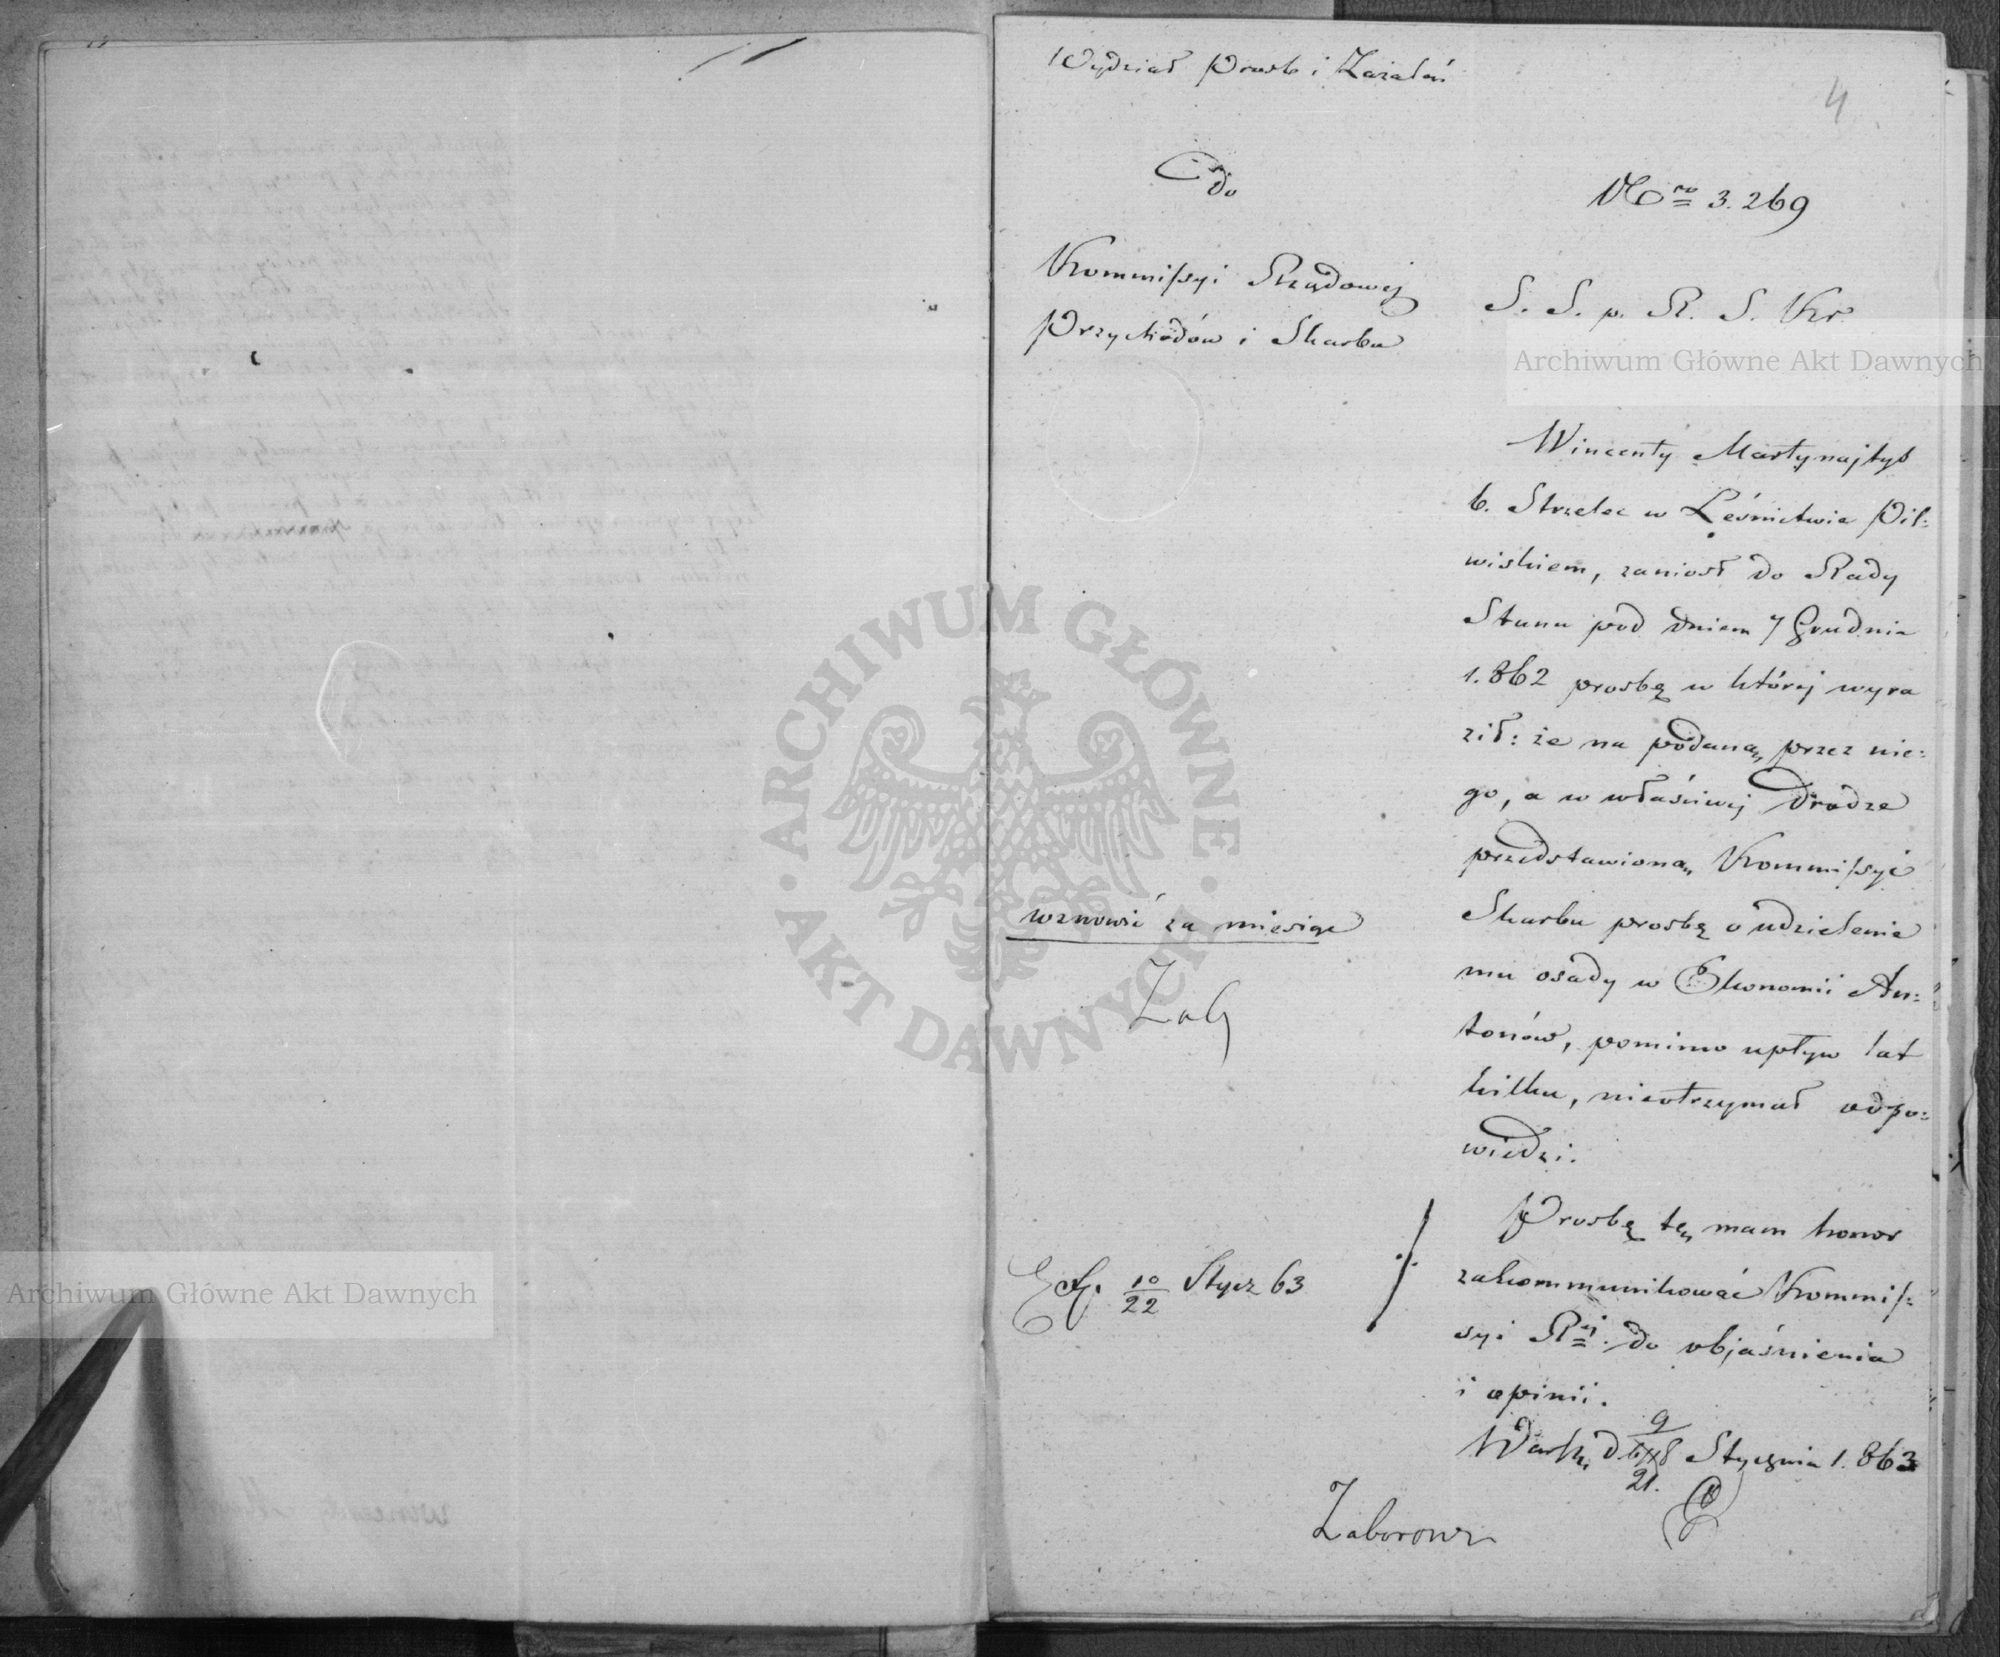 Wydział Prosb i Zażaleń
4
Do
Nro 3.269
Kommissyi Rządowej
Przychodów i Skarbu
S. S. p. R. S. Kr.
Archiwum Główne Akt Dawnych
Wincenty Martynajtys
b. Strzelec w Leśnictwie Pil=
wiskiem, zaniosł do Rady
Stanu pod dniem 7 Grudnia
1.862 prosbę w której wyra
ził: że na podaną przez nie=
go, a w właściwej drodze
przedstawioną Kommissyi
Skarbu prosbę o udzielenie
mu osady w Ekonomii An=
tonów, pomimo upływ lat
kilku, nieotrzymał odpo=
wiedzi.
wznowić za miesiąc
Zab
Prosbę tę mam honor
zakommunikować Kommis=
syi Rej do objaśnienia
i opinii.
Exp. 10/22 Stycz 63
Warsz. d. 9/21. Stycznia 1.863
Zaborows
ARCHIWUM GŁÓWNE
AKT DAWNYCH
Archiwum Główne Akt Dawnych